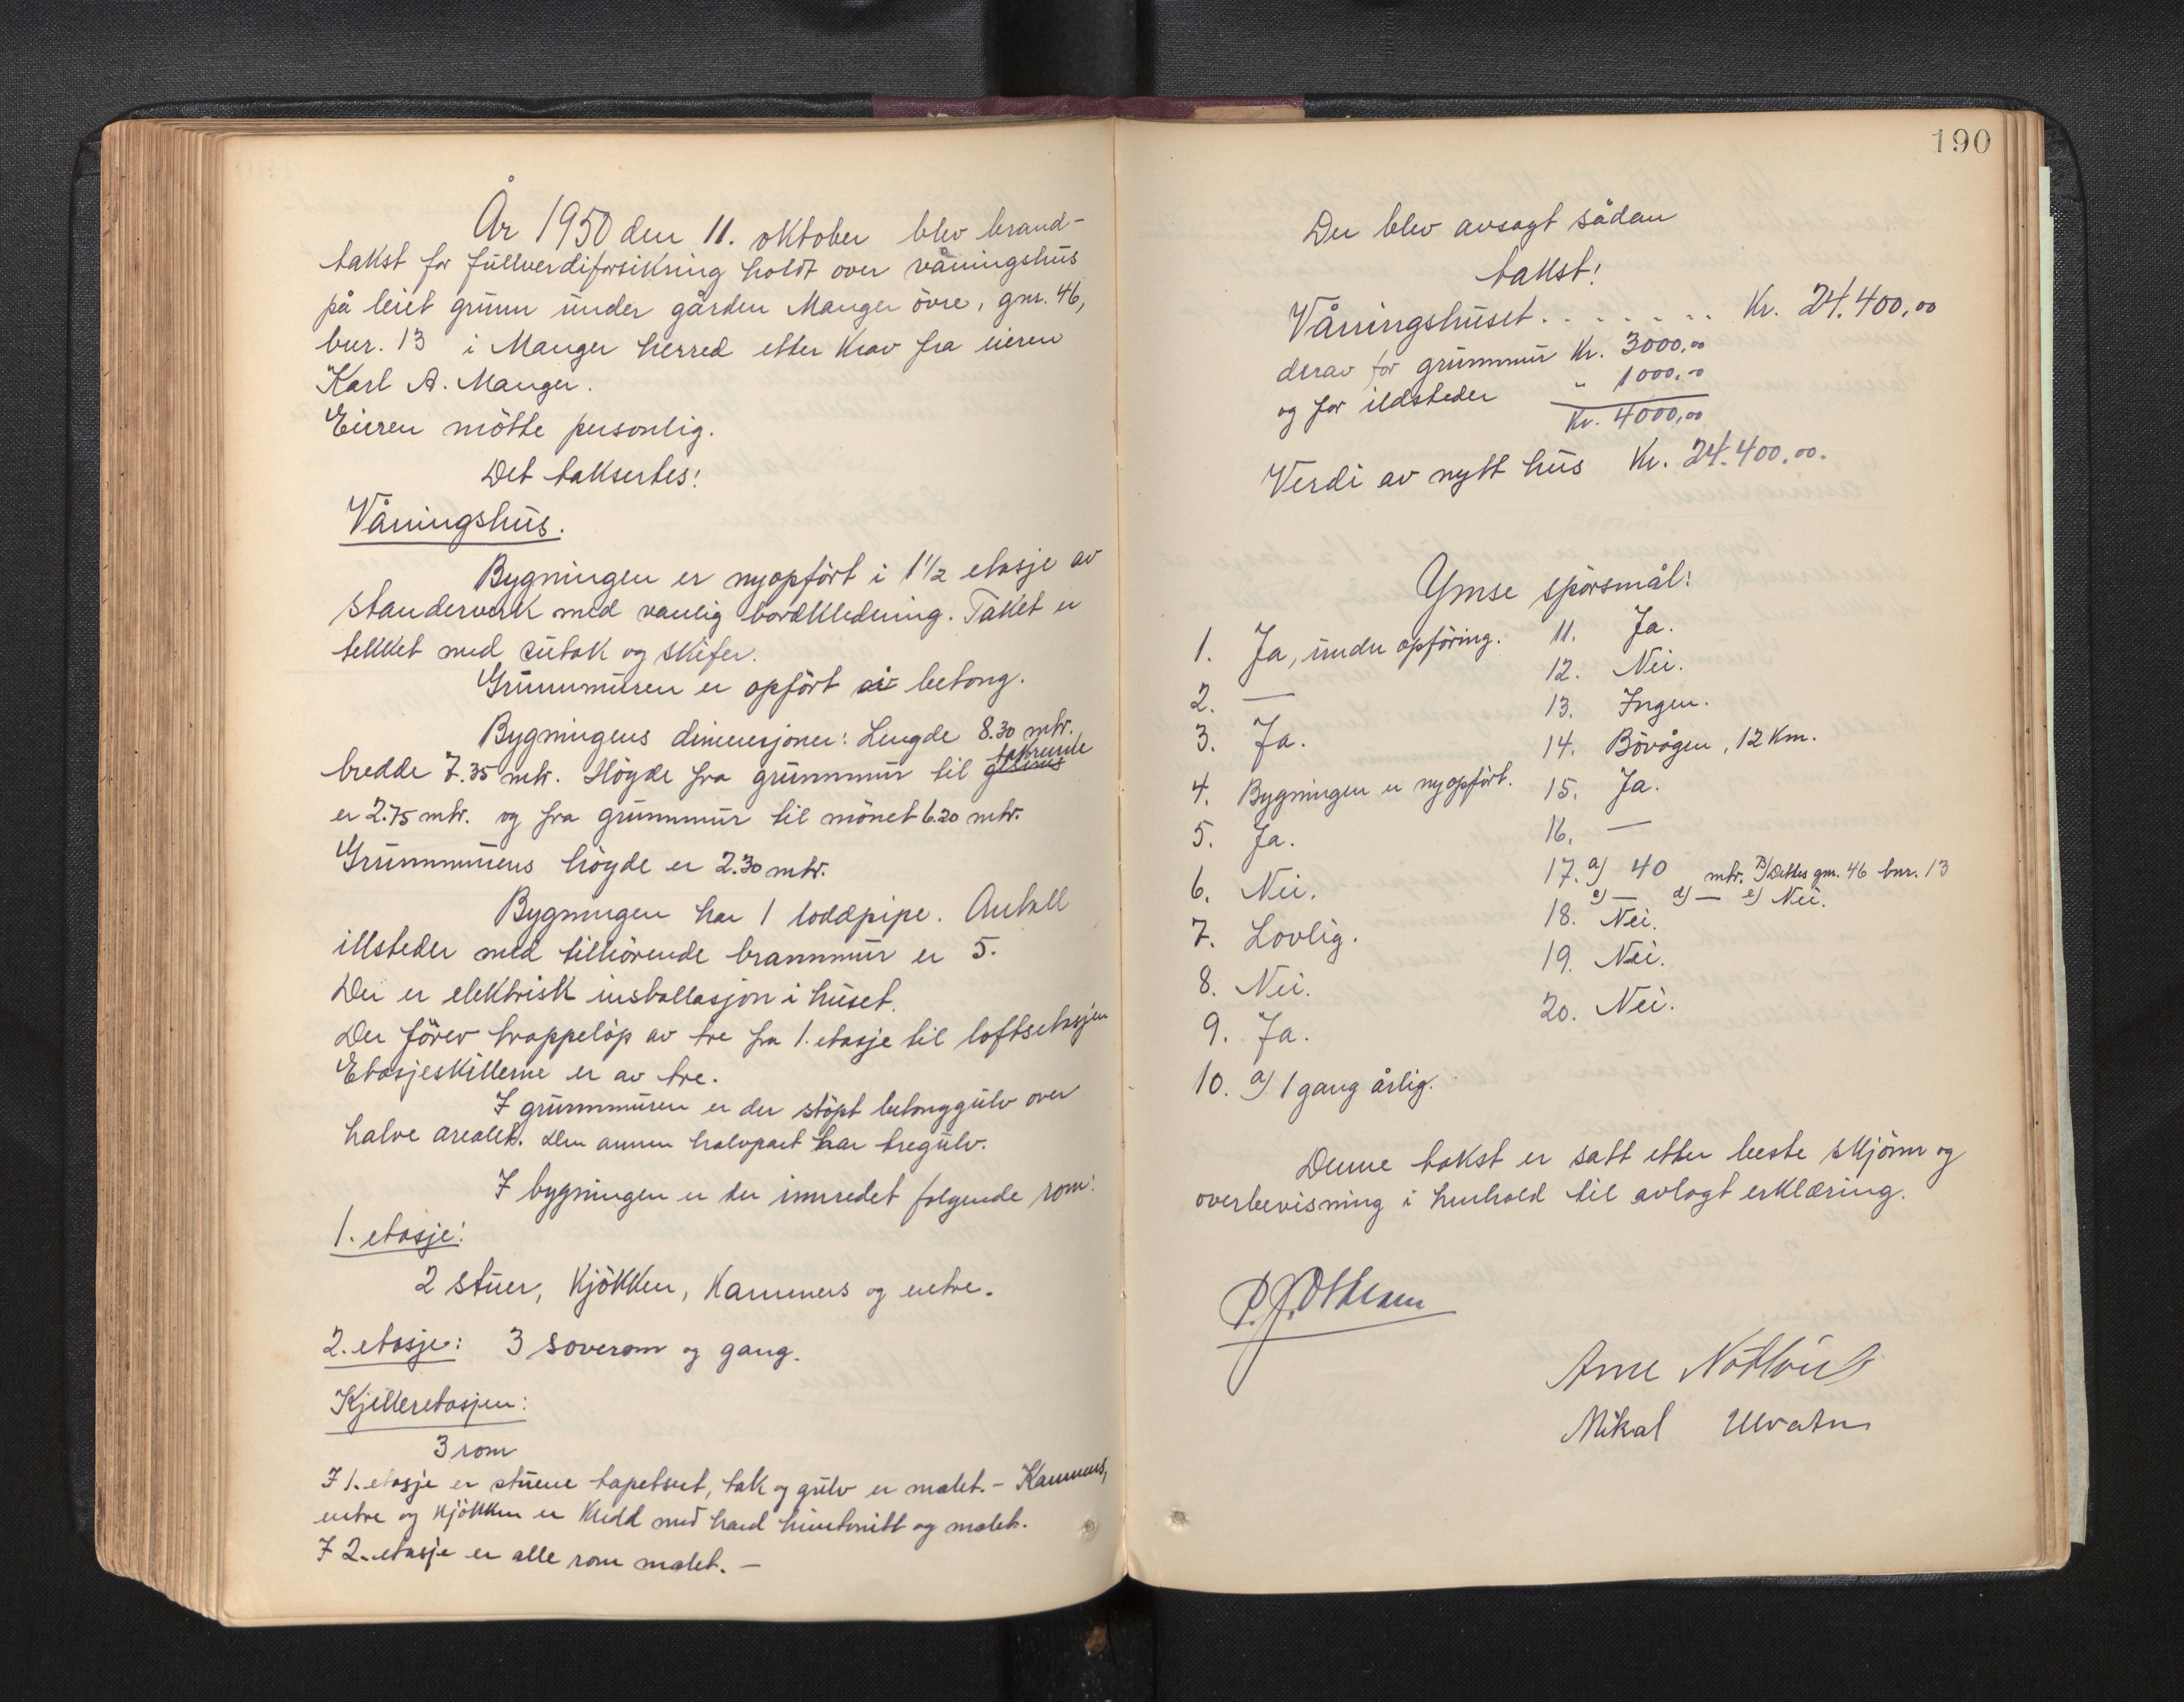 År 1950 den 11. oktober blev brand-
takst for fullverdiforsikring holdt over våningshus
på leiet grunn under gården Manger övre, gnr. 46,
bnr. 13 i Manger herred etter krav fra eieren
Karl A. Manger.
Eieren mötte personlig.
Det taksertes:
Våningshus.
Bygningen er nyopfört i 1 1/2 etasje av
standerverk med vanlig bordkledning. Taket er
tekket med sutak og skifer.
Grunnmuren er opfört av betong.
Bygningens dimensjoner: Lengde 8.30 mtr.
bredde 7.35 mtr. Höyde fra grunnmur til takrende
er 2.75 mtr. og fra grunnmur til mönet 6.20 mtr.
Grunnmurens höyde er 2.30 mtr.
Bygningen har 1 loddpipe. Antall
illsteder med tilhörende brannmur er 5.
Der er elektrisk installasjon i huset.
Der förer trappelöp av tre fra 1. etasje til loftsetasjen
Etasjeskillerne er av tre.
I grunnmuren er der stöpt betonggulv over
halve arealet. Den annen halvpart har tregulv.
I bygningen er der innredet folgende rom:
1. etasje:
2 stuer, kjökken, kammers og entre.
2. etasje: 3 soverom og gang.
Kjelleretasjen:
3 rom
I 1. etasje er stuene tapetsert, tak og gulv er malet. - Kammers,
entre og kjökken er kledd med hard huntonitt og malet.
I 2. etasje er alle rom malet. —
190
Der blev avsagt sådan
takst:
Våningshuset . . . . . . . Kr. 24.400,00
derav for grunnmur Kr. 3000,00
og for ildsteder " 1000,-0
Kr. 4000,00
Verdi av nytt hus Kr. 24.400,00.
Ymse spörsmål:
1. Ja, under opföring.
2. —
3. Ja.
4. Bygningen er nyopfört.
5. Ja.
6. Nei.
7. Lovlig.
8. Nei.
9. Ja.
10. a) 1 gang årlig.
11. Ja.
12. Nei.
13. Ingen.
14. Bövågen, 12 km.
15. Ja.
16. —
17. a) 40 mtr. b) Dettes gnr. 46 bnr. 13
c) — d) — e) Nei.
18. Nei.
19. Nei.
20. Nei.
Denne takst er satt etter beste skjönn og
overbevisning i henhold til avlagt erklæring.
Arne
Mikal Ulvatn